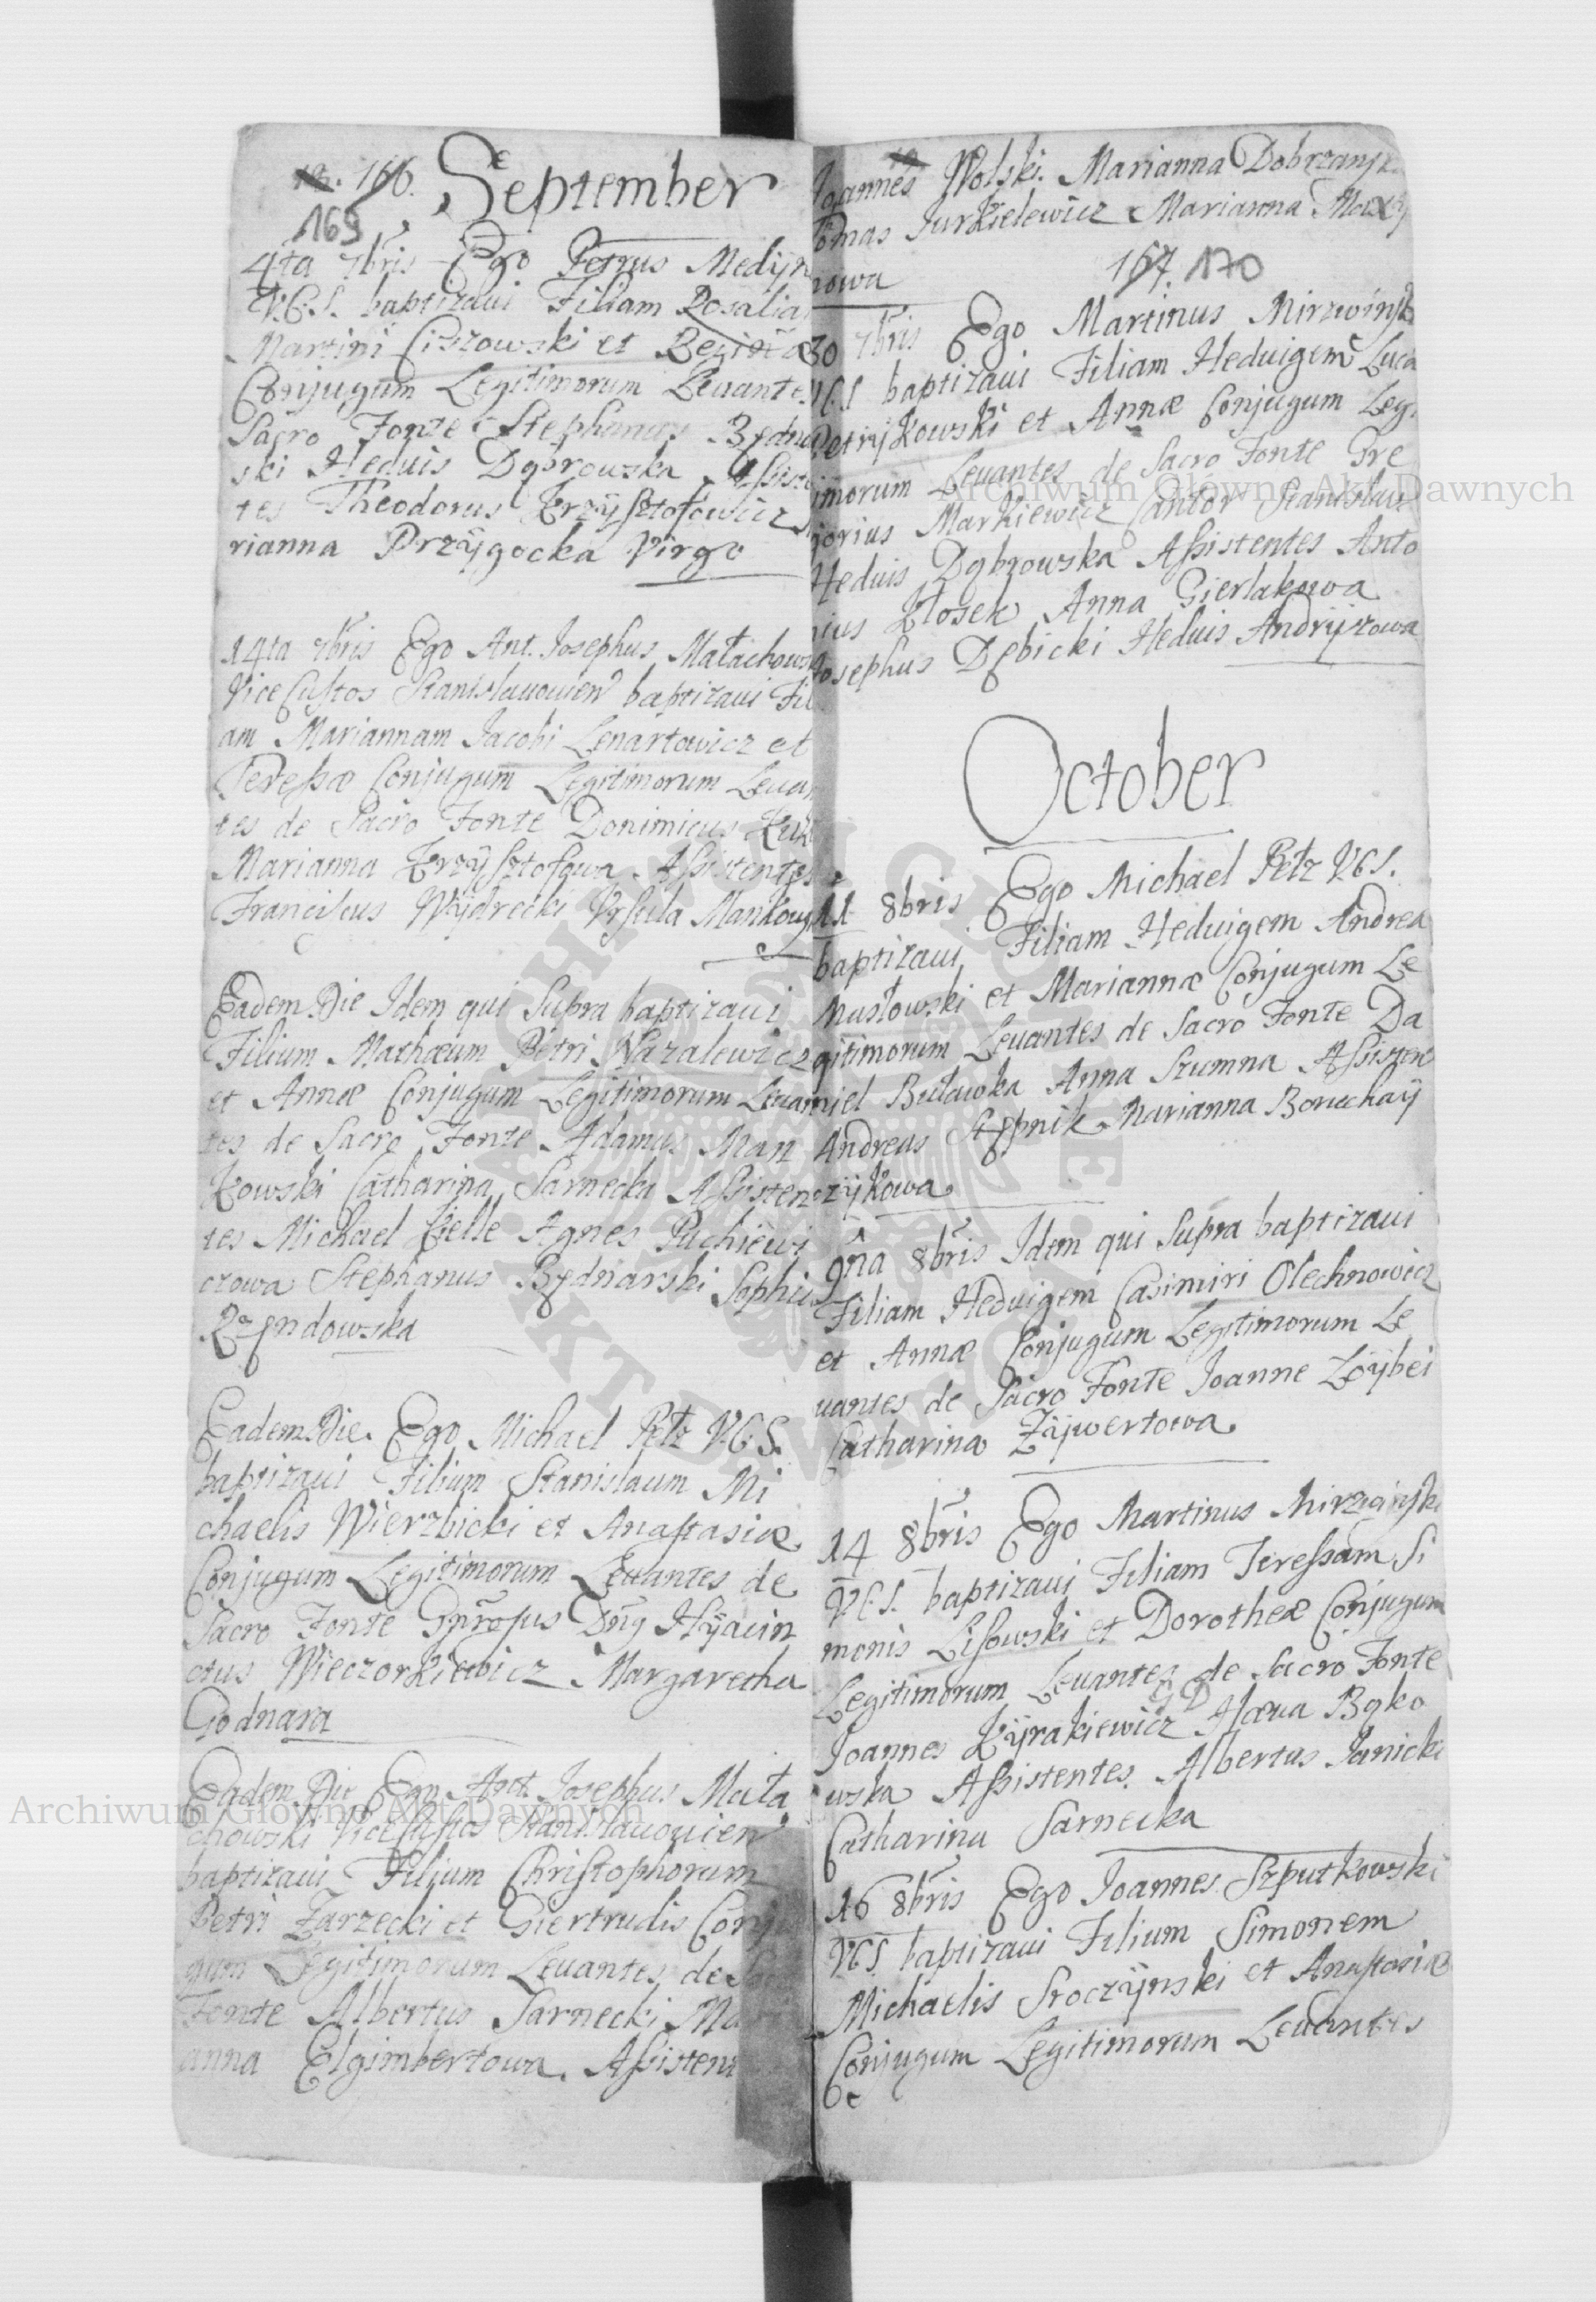 12. 166. September
169
4ta 7bris Ego Petrus Medÿn
V.C.S. baptizaui Filiam Rosalia
Martini Ciszowski et Regina
Conjugum Legitimorum Leuante
Sacro Fonte Stephanus Bydna
ski Heduis Dąbrowska Assiste
tes Theodorus Krzÿsztofowicz
rianna Przÿgocka Virgo
14ta 7bris Ego Ant. Josephus Małachows
Vice Custos Stanislauowien baptizaui Fil
am Mariannam Jacobi Lenartowicz et
Teressæ Conjugum Legitimorum Leuan
tes de Sacro Fonte Donimicus
Marianna Krzÿsztofowa Assistentes
Franciscus Wÿdrecki Vrsula Mankows
Eadem Die Idem qui Supra baptizaui
Filium Mathæum Petri Wazalewicz
et Annæ Conjugum Legitimorum Leuan
tes de Sacro Fonte Adamus Man
kowski Catharina Sarnecka Assisten
tes Michael Kielle Agnes Puchiewi
czowa Stephanus Bydnarski Sophia
Rzendowska
Eadem Die. Ego Michael Pełz V.C.S.
baptizaui Filium Stanislaum Mi
chaelis Wierzbicki et Anastasiæ
Conjugum Legitimorum Leuantes de
Sacro Fonte Gnrosus Dns Hÿacin
ctus Wieczorkiewicz Margaretha
Godnara
Eadem Die Ego Ant. Josephus Mała
chowski Vice Custos Stanislauouien
baptizaui Filium Christophorum
Petri Zarzecki et Giertrudis Conj
gum Legitimorum Leuantes de
Fonte Albertus Sarnecki Ma
anna Elgimbertowa. Assisten
Joannes Wolski. Marianna Dobrzansk
omas Jurkielewicz Marianna
nowa
167. 170
30 7bris Ego Martinus Mirzwinski
V.C.S baptizaui Filiam Heduigem Luca
Petrÿkowski et Annæ Conjugum Leg
imorum Leuantes de Sacro Fonte Gre
gorius Markiewicz Cantor Stanislau
Heduis Dąbrowska Assistentes Anto
nius Kłosek Anna Gierlakowa
Josephus Dębicki Heduis Andrÿszowa
October
11 8bris Ego Michael Pełz V.C.S.
baptizaui Filiam Heduigem Andrea
Musłowski et Mariannæ Conjugum Le
gitimorum Leuantes de Sacro Fonte Da
niel Buławka Anna Szumna Assisten
Andreas Stępnik Marianna Boruchaÿ
zÿkowa
9na 8bris Idem qui Supra baptizaui
Filiam Heduigem Casimiri Olechnowicz
et Annæ Conjugum Legitimorum Le
uantes de Sacro Fonte Joanne Zoÿbei
Catharina Zÿwertowa
14 8bris Ego Martinus Mirzwinski
V.C.S. baptizaui Filiam Teressam Si
monis Lisowski et Dorotheæ Conjugum
Legitimorum Leuantes de Sacro Fonte
Joannes Kÿrakiewicz GD Hæua Bąko
wska Assistentes. Albertus Janicki
Catharina Sarnecka
16 8bris Ego Joannes Szputkowski
VCS. baptizaui Filium Simonem
Michaelis Sroczÿnski et Anastasiæ
Conjugum Legitimorum Leuantes
de
Archiwum Główne Akt Dawnych
Archiwum Główne Akt Dawnych
ARCHIWUM GŁÓWNE AKT DAWNYCH